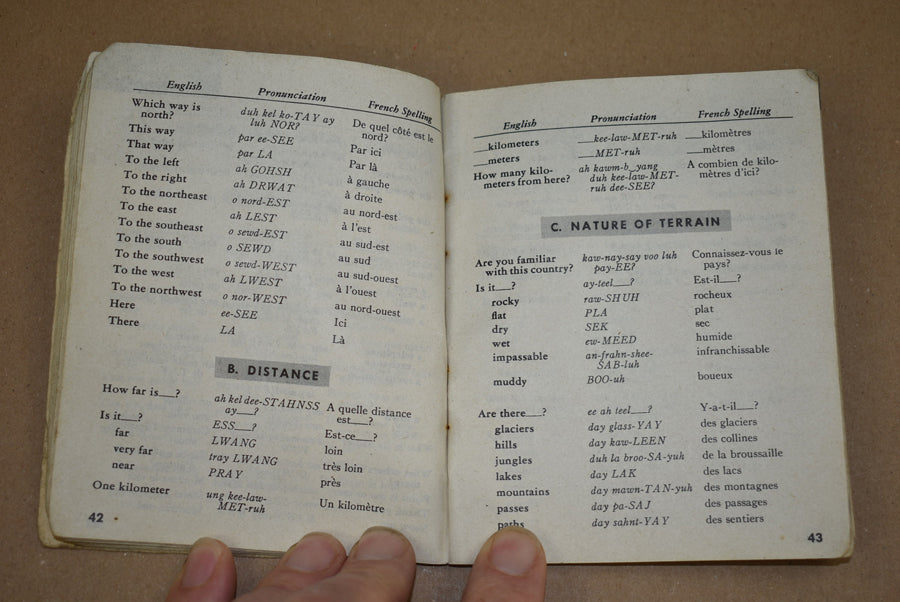 English Pronunciation French Spelling
Which way is duh kel ko-TAY ay De quel côté est le
north? luh NOR? nord?
This way par ee-SEE Par ici
That way par LA Par là
To the left ah GOHSH à gauche
To the right ah DRWAT à droite
To the northeast o nord-EST au nord-est
To the east ah LEST à l'est
To the southeast o sewd-EST au sud-est
To the south o SEWD au sud
To the southwest o sewd-WEST au sud-ouest
To the west ah LWEST à l'ouest
To the northwest o nor-WEST au nord-ouest
Here ee-SEE Ici
There LA Là
B. DISTANCE
How far is___? ah kel dee-STAHNSS A quelle distance
ay___? est___?
Is it___? ESS___? Est-ce___?
far LWANG loin
very far tray LWANG très loin
near PRAY près
One kilometer ung kee-law- Un kilomètre
MET-ruh
42
English Pronunciation French Spelling
___kilometers ___kee-law-MET-ruh ___kilomètres
___meters ___MET-ruh ___mètres
How many kilo- ah kawm-b_yang A combien de kilo-
meters from here? duh kee-law-MET- mètres d'ici?
ruh dee-SEE?
C. NATURE OF TERRAIN
Are you familiar kaw-nay-say voo luh Connaissez-vous le
with this country? pay-EE? pays?
Is it___? ay-teel___? Est-il___?
rocky raw-SHUH rocheux
flat PLA plat
dry SEK sec
wet ew-MEED humide
impassable an-frahn-shee- infranchissable
SAB-luh
muddy BOO-uh boueux
Are there___? ee ah teel___? Y-a-t-il___?
glaciers day glass-YAY des glaciers
hills day kaw-LEEN des collines
jungles duh la broo-SA-yuh de la broussaille
lakes day LAK des lacs
mountains day mawn-TAN-yuh des montagnes
passes day pa-SAJ des passages
paths day sahnt-YAY des sentiers
43